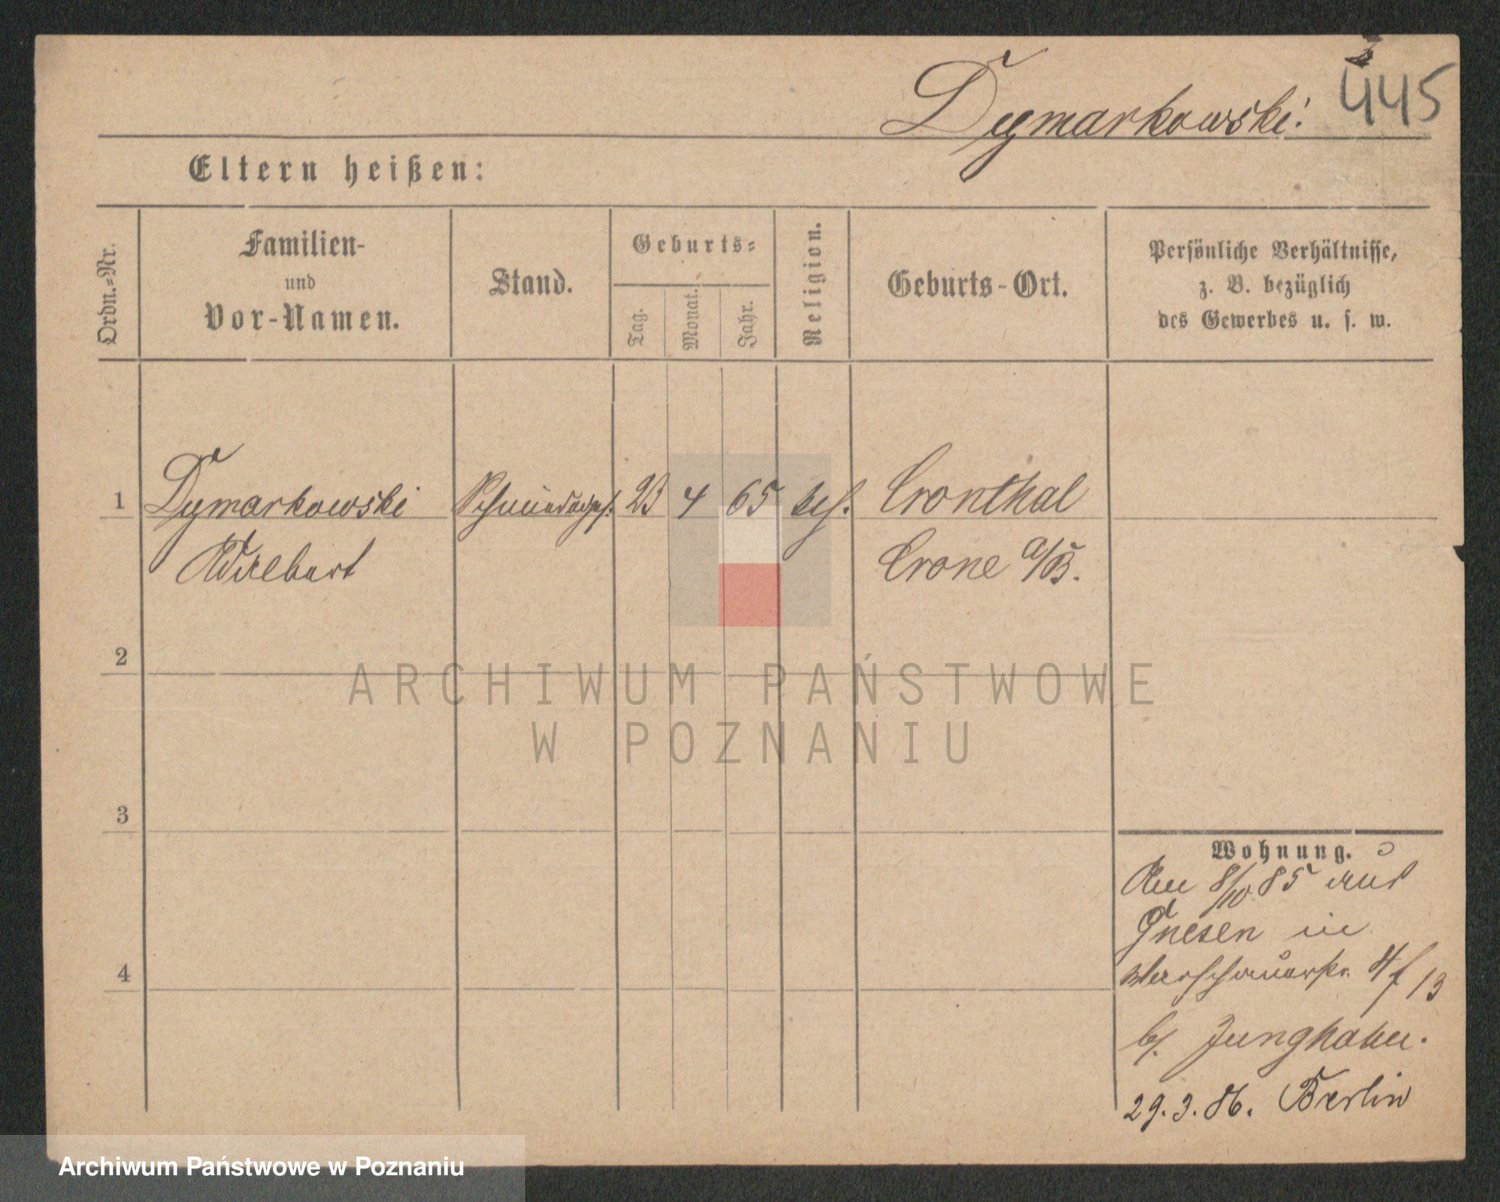 3
445
Dymarkowski.
Eltern heißen:
Ordn.=Nr.
Familien-
und
Vor-Namen.
Stand.
Geburts=
Tag.
Monat.
Jahr.
Religion.
Geburts-Ort.
Persönliche Verhältnisse,
z. B. bezüglich
des Gewerbes u. s. w.
1 Dymarkowski 23 4 65 Cronthal
Adalbert Crone a/B.
2
ARCHIWUM PAŃSTWOWE
W POZNANIU
3
4
Wohnung.
Am 8/10 85 aus
Gnesen in
Warschauerstr. 4f 13
b/. Junghahn.
29.3.86. Berlin
Archiwum Państwowe w Poznaniu